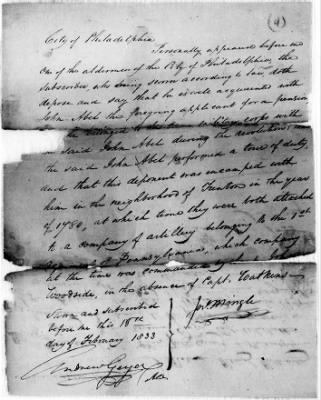 (4)
City of Philadelphia
Personally appeared before me
one of the aldermen of the City of Philadelphia, the
Subscriber who being sworn according to Law, doth
depose and say that he is well acquainted with
John Abel the foregoing applicant for a pension
corps with
said John Abel during the revolution
the said John Abel performed a tour of duty,
and that this deponent was encamped with
him in the neighborhood of Trenton in the year
of 1780, at which time they were both attached
to a company of artillery belonging to the 1st
of Pennsylvania, which company
at the time was commanded by
Woodside, in the absence of Capt.
Sworn and subscribed
before me this 18th
day of February 1833
Andrew Geyer